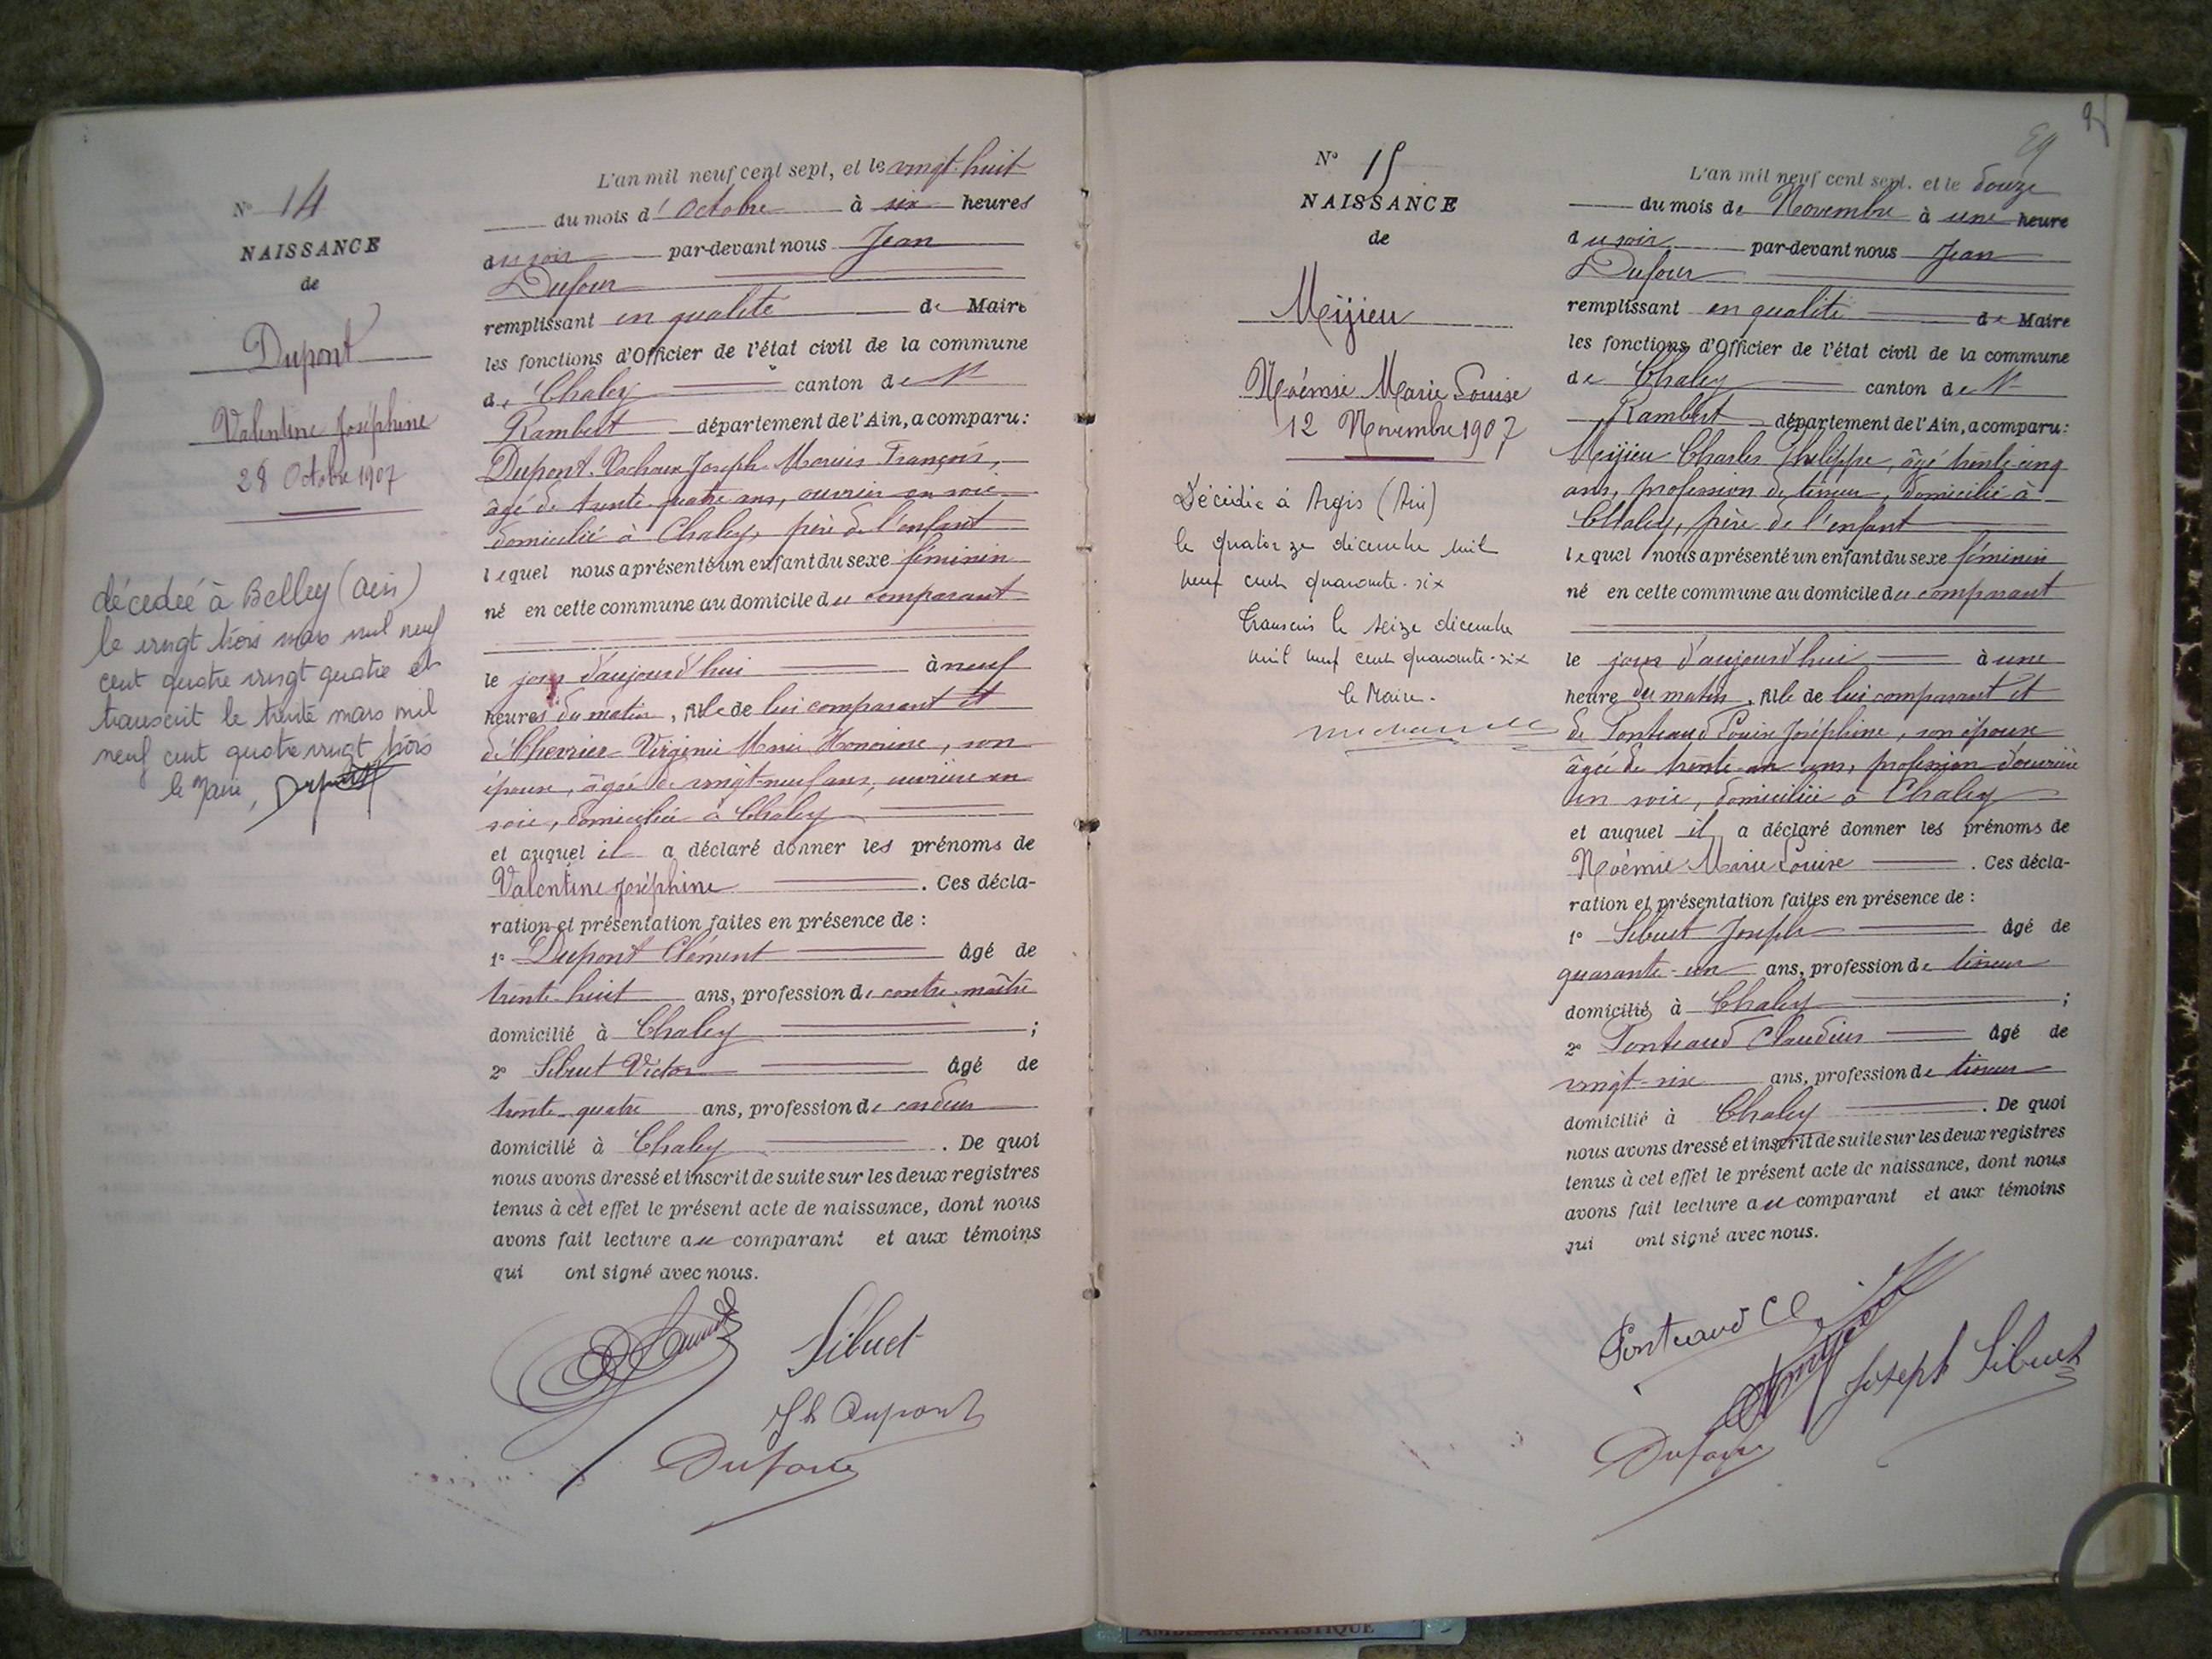 N° 14
NAISSANCE
de
Dupont
Valentine Joséphine
28 Octobre 1907
décedeé à Belley (ain)
le vingt trois mars mil neuf
cent quatre vingt quatre et
transcrit le trente mars mil
neuf cent quatre vingt trois
le Maire,
L'an mil neuf cent sept, et le vingt-huit
du mois d'Octobre à six heures
du soir par-devant nous Jean
Dufour
remplissant en qualité de Maire
les fonctions d'Officier de l'état civil de la commune
de Chaley canton de St
Rambert département de l'Ain, a comparu:
Dupont-Vachoux Joseph Marius François,
âgé de trente-quatre ans, ouvrier en soie
domicilié à Chaley, père de l'enfant
lequel nous a présenté un enfant du sexe féminin
né en cette commune au domicile du comparant
le jour d'aujourd'hui à neuf
heures du matin, fille de lui comparant et
de Chevrier Virginie Marie Honorine, son
épouse, âgée de vingt-neuf ans, ouvrière en
soie, domiciliée à Chaley
et auquel il a déclaré donner les prénoms de
Valentine Joséphine. Ces décla-
ration et présentation faites en présence de:
1° Dupont Clément âgé de
trente-huit ans, profession de contre-maître
domicilié à Chaley;
2° Sibuet Victor âgé de
trente-quatre ans, profession de cardeur
domicilié à Chaley. De quoi
nous avons dressé et inscrit de suite sur les deux registres
tenus à cet effet le présent acte de naissance, dont nous
avons fait lecture au comparant et aux témoins
qui ont signé avec nous.
Sibuet
Dupont
Dufour
N° 15
NAISSANCE
de
Mijieu
Noémie Marie Louise
12 Novembre 1907
Décédée à Argis (Ain)
le quatorze décembre mil
neuf cent quarante-six
Transcris le seize décembre
mil neuf cent quarante-six
le Maire.
L'an mil neuf cent sept, et le douze
du mois de Novembre à une heure
du soir par-devant nous Jean
Dufour
remplissant en qualité de Maire
les fonctions d'Officier de l'état civil de la commune
de Chaley canton de St
Rambert département de l'Ain, a comparu:
Mijieu Charles Philippe, âgé trente-cinq
ans, profession de tireur, domicilié à
Chaley, père de l'enfant
lequel nous a présenté un enfant du sexe féminin
né en cette commune au domicile du comparant
le jour d'aujourd'hui à une
heure du matin, fille de lui comparant et
de Ponteaud Louise Joséphine, son épouse
âgée de trente-un ans, profession d'ouvrière
en soie, domiciliée à Chaley
et auquel il a déclaré donner les prénoms de
Noémie Marie Louise. Ces décla-
ration et présentation faites en présence de:
1° Sibuet Joseph âgé de
quarante-un ans, profession de tireur
domicilié à Chaley;
2° Ponteaud Claudius âgé de
vingt-six ans, profession de tireur
domicilié à Chaley. De quoi
nous avons dressé et inscrit de suite sur les deux registres
tenus à cet effet le présent acte de naissance, dont nous
avons fait lecture au comparant et aux témoins
qui ont signé avec nous.
Ponteaud Cl
Joseph Sibuet
Dufour